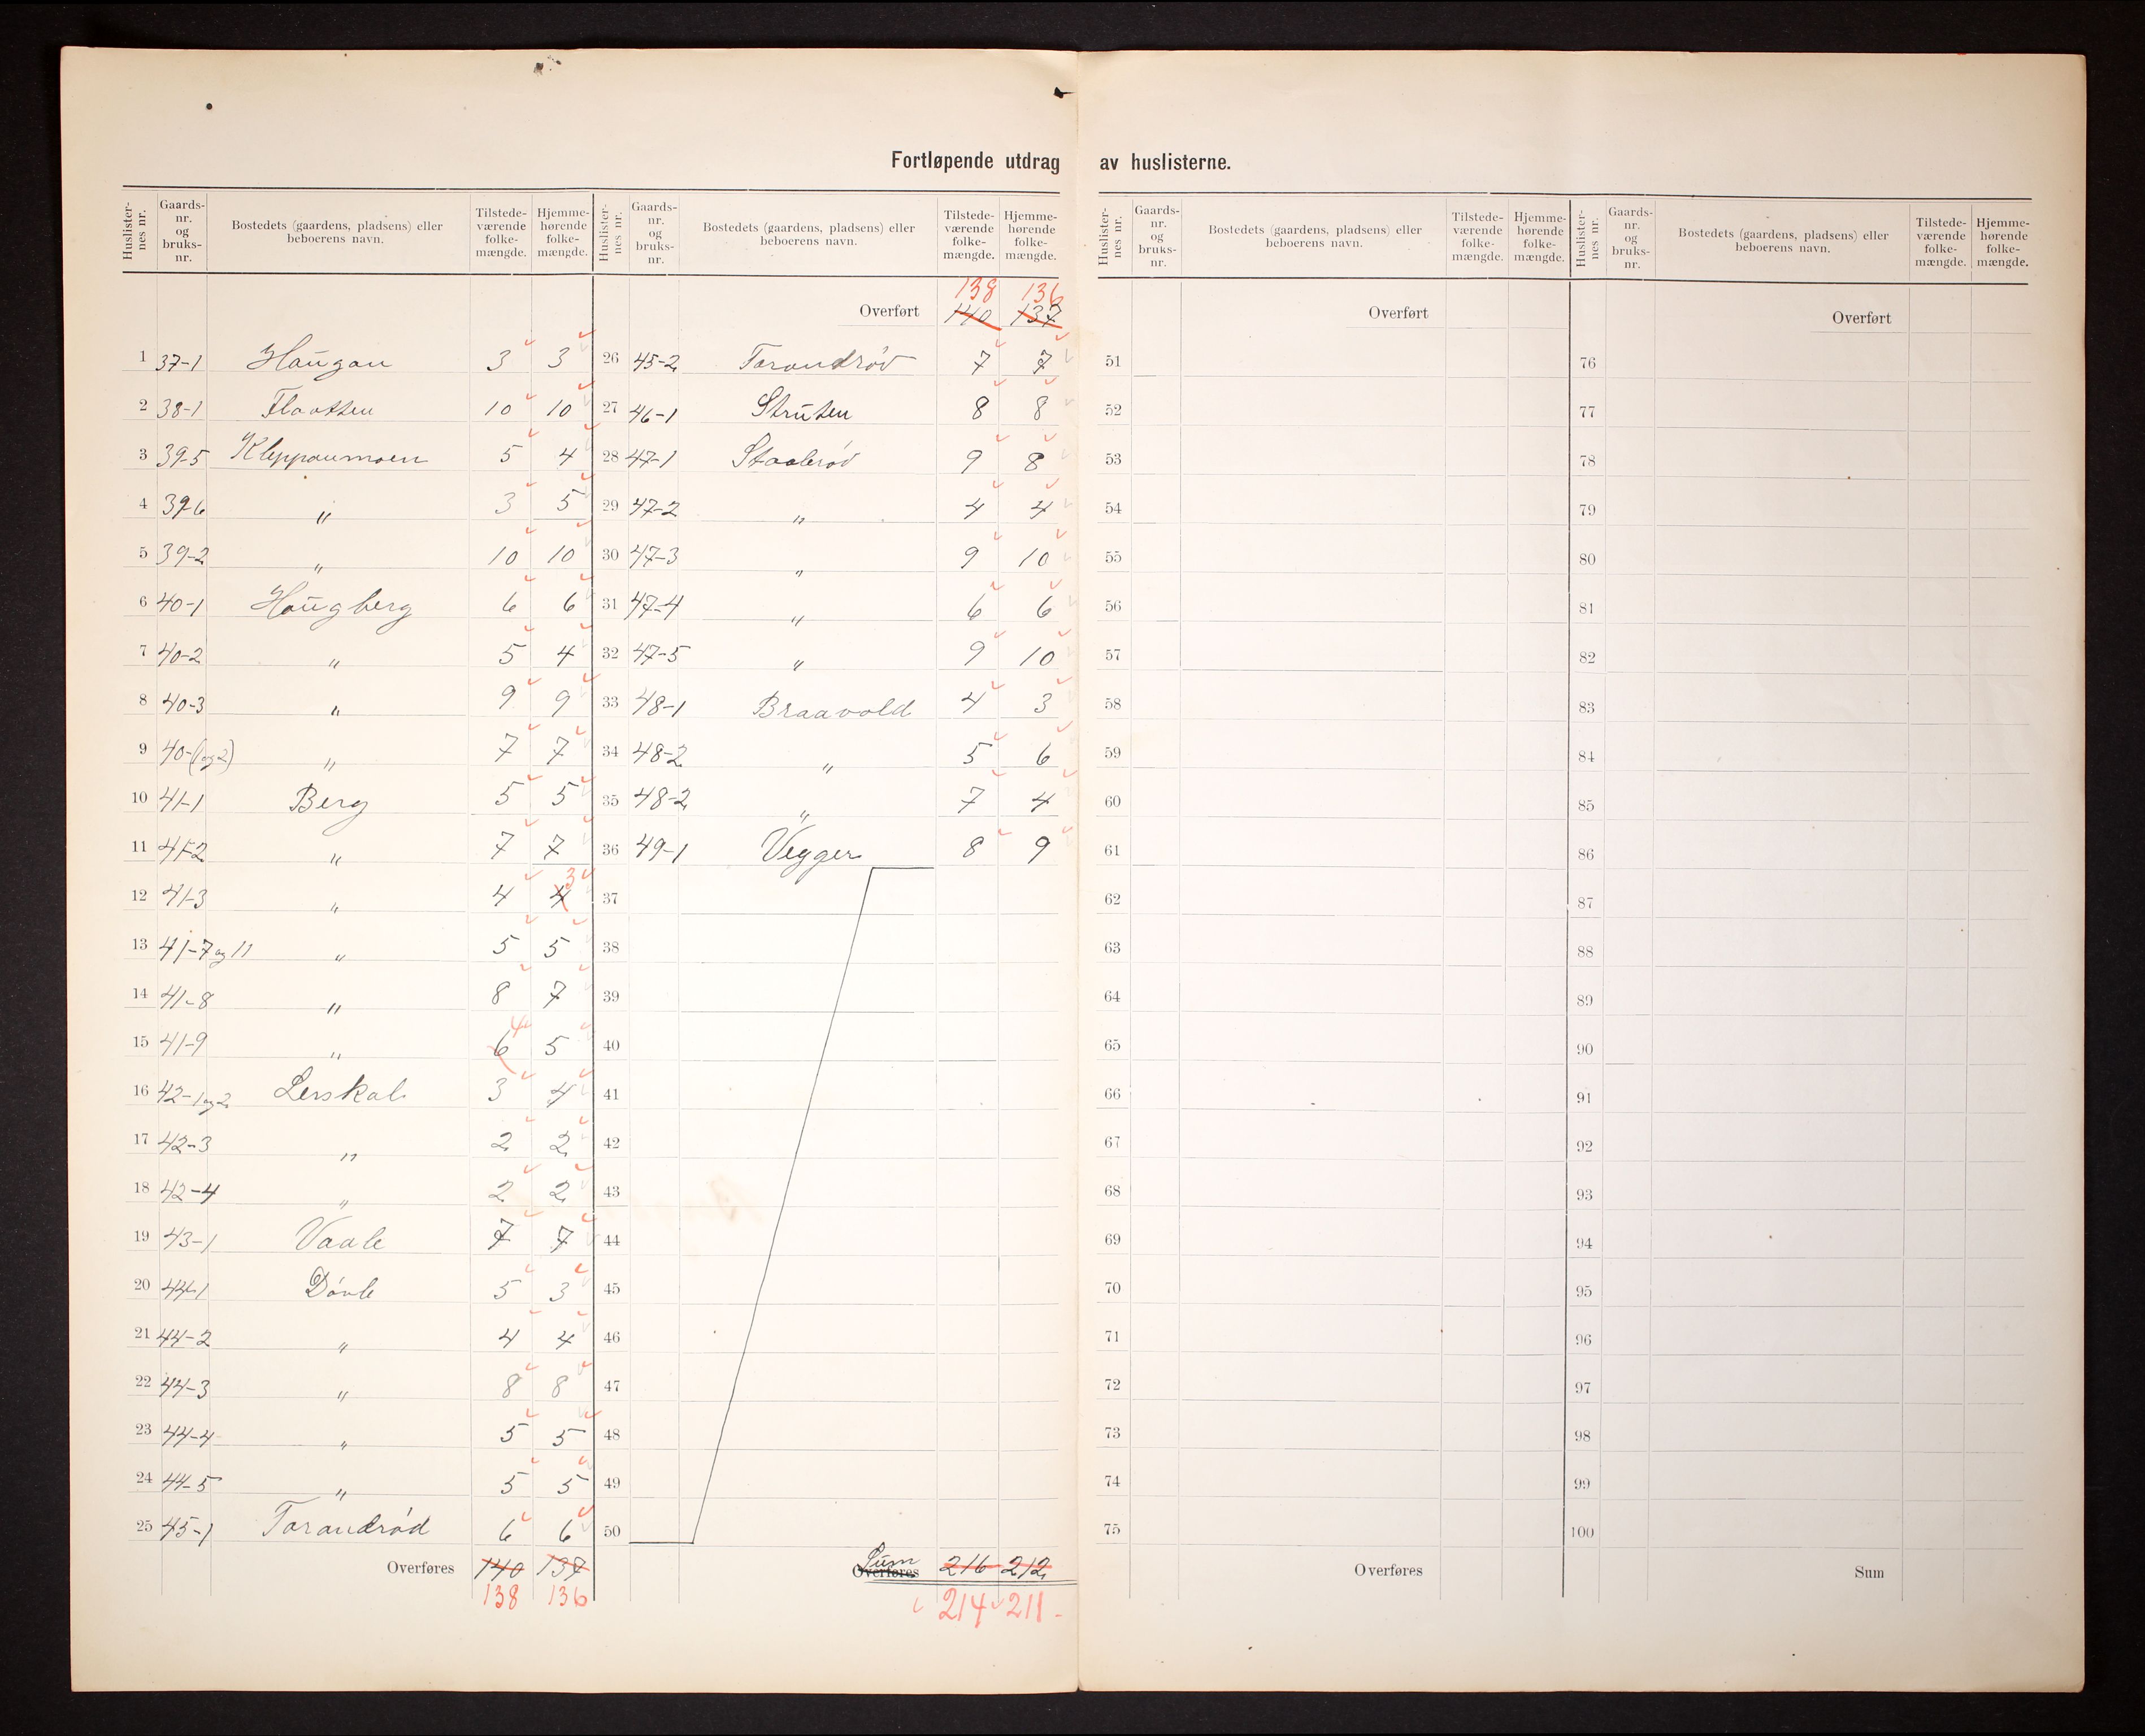 Fortløpende utdrag av huslisterne.
Huslister-nes nr. Gaards-nr. og bruks-nr. Bostedets (gaardens, pladsens) eller beboerens navn. Tilstede-værende folke-mængde. Hjemme-hørende folke-mængde.
1 37-1 Haugan 3 3
2 38-1 Flaatten 10 10
3 39-5 Kleppanmoen 5 4
4 39-6 " 3 5
5 39-2 " 10 10
6 40-1 Haugberg 6 6
7 40-2 " 5 4
8 40-3 " 9 9
9 40-(1 og 2) " 7 7
10 41-1 Berg 5 5
11 41-2 " 7 7
12 41-3 " 4 4 3
13 41-7 og 11 " 5 5
14 41-8 " 8 7
15 41-9 " 6 4 5
16 42-1 og 2 Lerskal 3 4
17 42-3 " 2 2
18 42-4 " 2 2
19 43-1 Vaale 7 7
20 44-1 Døvle 5 3
21 44-2 " 4 4
22 44-3 " 8 8
23 44-4 " 5 5
24 44-5 " 5 5
25 45-1 Tarandrød 6 6
Overføres 140 137
138 136
Huslister-nes nr. Gaards-nr. og bruks-nr. Bostedets (gaardens, pladsens) eller beboerens navn. Tilstede-værende folke-mængde. Hjemme-hørende folke-mængde.
138 136
Overført 140 137
26 45-2 Tarandrød 7 7
27 46-1 Struten 8 8
28 47-1 Staalerød 9 8
29 47-2 " 4 4
30 47-3 " 9 10
31 47-4 " 6 6
32 47-5 " 9 10
33 48-1 Braavold 4 3
34 48-2 " 5 6
35 48-2 " 7 4
36 49-1 Vegger 8 9
37
38
39
40
41
42
43
44
45
46
47
48
49
50
Sum
Overføres 216 212
214 211
Huslister-nes nr. Gaards-nr. og bruks-nr. Bostedets (gaardens, pladsens) eller beboerens navn. Tilstede-værende folke-mængde. Hjemme-hørende folke-mængde.
Overført
51
52
53
54
55
56
57
58
59
60
61
62
63
64
65
66
67
68
69
70
71
72
73
74
75
Overføres
Huslister-nes nr. Gaards-nr. og bruks-nr. Bostedets (gaardens, pladsens) eller beboerens navn. Tilstede-værende folke-mængde. Hjemme-hørende folke-mængde.
Overført
76
77
78
79
80
81
82
83
84
85
86
87
88
89
90
91
92
93
94
95
96
97
98
99
100
Sum